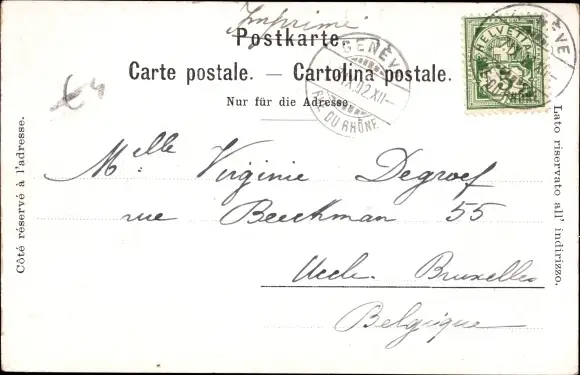 Imprimé
Postkarte.
Carte postale. — Cartolina postale.
Nur für die Adresse.
GENÈVE
IX.02.XII–
RUE DU RHÔNE
HELVETIA
5
Côté réservé à l'adresse.
Lato riservato all' indirizzo.
Melle Virginie Degroef
rue Beeckman 55
Uccle. Bruxelles
Belgique